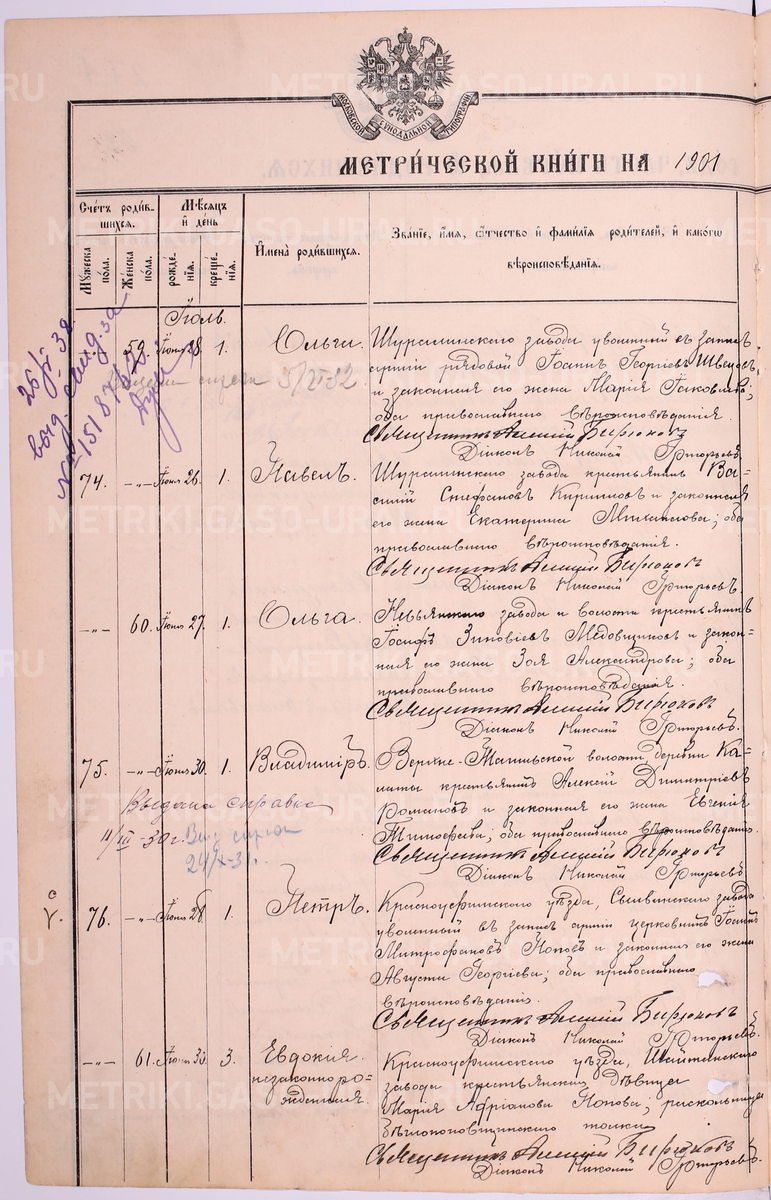 МОСКОВСКОЙ СѴНОДАЛЬНОЙ ТИПОГРАФІИ
МЕТРИ́ЧЕСКОЙ КНИ́ГИ НА 1901
Счетъ роди́вшихся.
Мѣсяцъ и день
Имена роди́вшихся.
Зва́ніе, и́мя, о́тчество и фами́лія роди́телей, и како́гѡ вѣроисповѣ́данія.
Му́жеска по́ла.
Же́нска по́ла.
рожде́нія.
креще́нія.
Іюль.
59. Іюня 28. 1. Ольга.
Шуралинскаго завода уволенный въ запасъ
арміи рядовой Іоаннъ Георгіевъ Швецовъ
и законная его жена Марія Іаковлева;
оба православнаго вѣроисповѣданія.
Священникъ Алексій Бирюковъ
Діаконъ Николай Григорьевъ
26/ 38
выд. свид. за
№ 15187/
справки 5/VI 32
74. -„- Іюня 26. 1. Павелъ.
Шуралинскаго завода крестьянинъ Ва=
силій Стефановъ Кирилловъ и законная
его жена Екатерина Михаилова; оба
православнаго вѣроисповѣданія.
Священникъ Алексій Бирюковъ
Діаконъ Николай Григорьевъ.
-„- 60. Іюня 27. 1. Ольга.
Невьянскаго завода и волости крестьянинъ
Іосифъ Зиновіевъ Медовщиковъ и закон=
ная его жена Зоя Александрова; оба
православнаго вѣроисповѣданія.
Священникъ Алексій Бирюковъ
Діаконъ Николай Григорьевъ.
75. -„- Іюня 30. 1. Владиміръ.
Верхне-Тагильской волости деревни Ка=
латы крестьянинъ Алексій Димитріевъ
Романовъ и законная его жена Евгенія
Тимофеева; оба православнаго вѣроисповѣданія.
Священникъ Алексій Бирюковъ
Діаконъ Николай Григорьевъ
Выдана справка
11/III -30 г.
24/X-31.
76. -„- Іюня 28. 1. Петръ.
Красноуфимскаго уѣзда, Сылвинскаго завода
уволенный въ запасъ арміи церковникъ Іоаннъ
Митрофановъ Поповъ и законная его жена
Августа Георгіева; оба православнаго
вѣроисповѣданія.
Священникъ Алексій Бирюковъ
Діаконъ Николай Григорьевъ.
-„- 61. Іюня 30. 3. Евдокія.
незаконноро=
жденная.
Красноуфимскаго уѣзда, Шайтанскаго
завода крестьянская дѣвица
Марія Адріанова Попова; раскольница
бѣглопоповщинскаго толка.
Священникъ Алексій Бирюковъ
Діаконъ Николай Григорьевъ.
METRIKI.GASO-URAL.RU